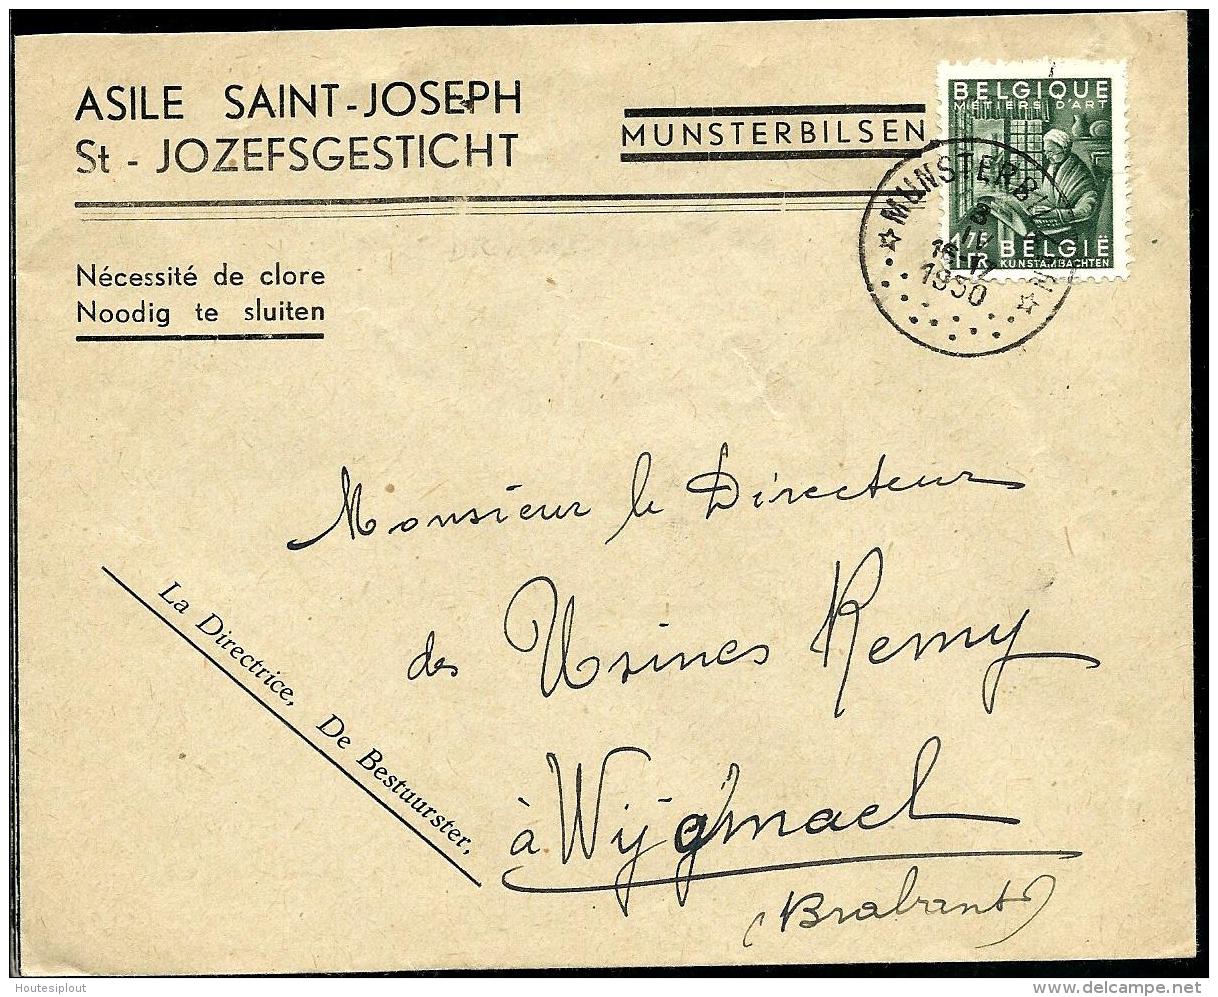 ASILE SAINT-JOSEPH
St - JOZEFSGESTICHT
MUNSTERBILSEN
BELGIQUE
METIERS D'ART
1F75
FR
BELGIË
KUNSTAMBACHTEN
MUNSTERBILZEN
16-17
1950
Nécessité de clore
Noodig te sluiten
Monsieur le Directeur
des Usines Remy
à Wijgmael
(Brabant)
La Directrice, De Bestuurster,
Houtesiplout
delcampe.net